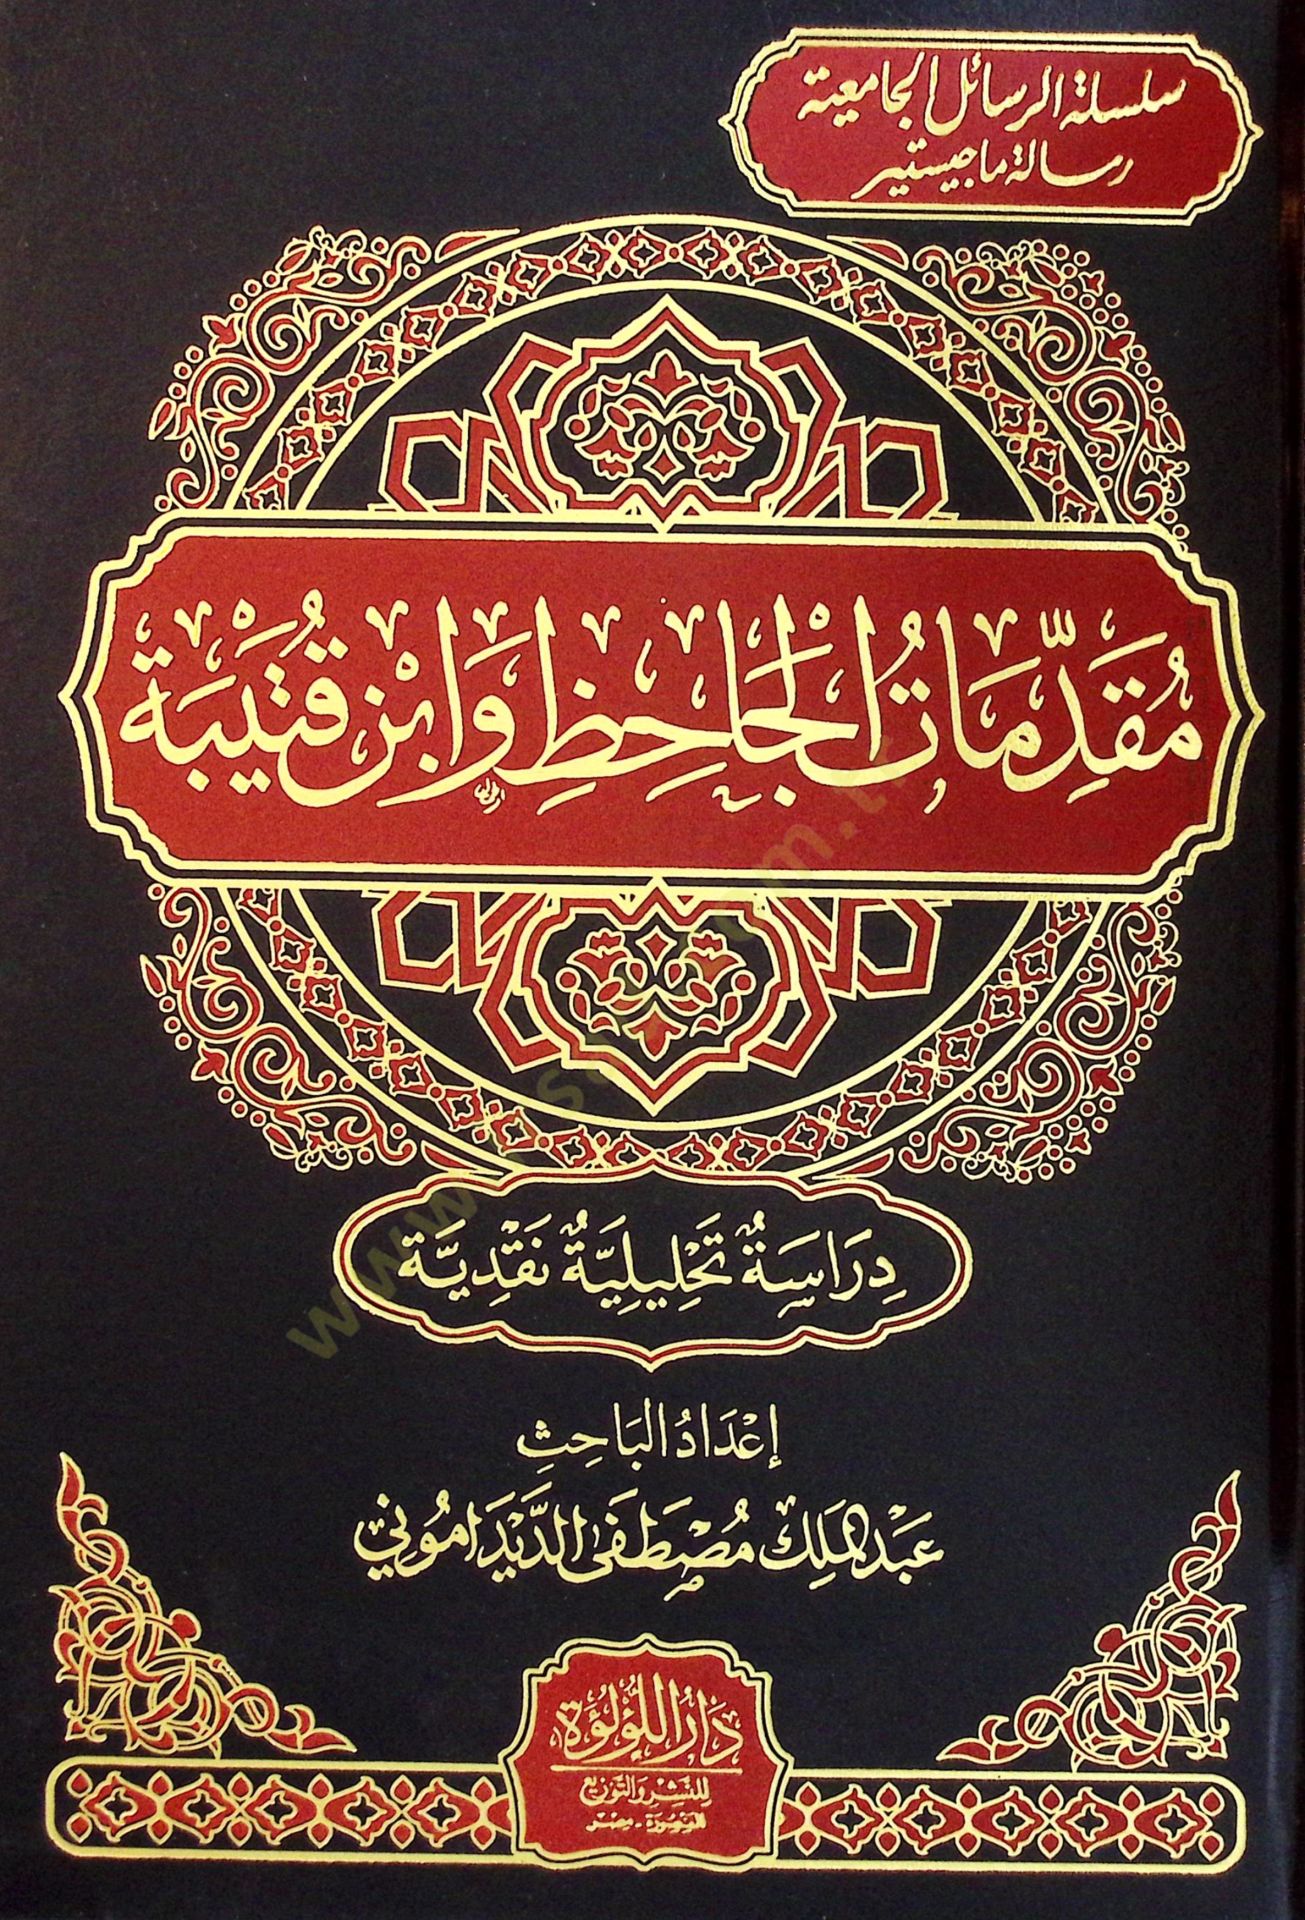 سلسلة الرسائل الجامعية
رسالة ماجيستير
مُقَدِّمَاتُ الْجَاحِظِ وَابْنِ قُتَيْبَة
دِرَاسَةٌ تَحْلِيلِيَّةٌ نَقْدِيَّة
إِعْدَادُ البَاحِثِ
عَبْدالمَلِك مُصْطَفَى الدَّيْدَامُونِي
دَارُ اللُّؤْلُؤَة
لِلنَّشِر وَالتَّوْزِيع
المنصورة - مصر